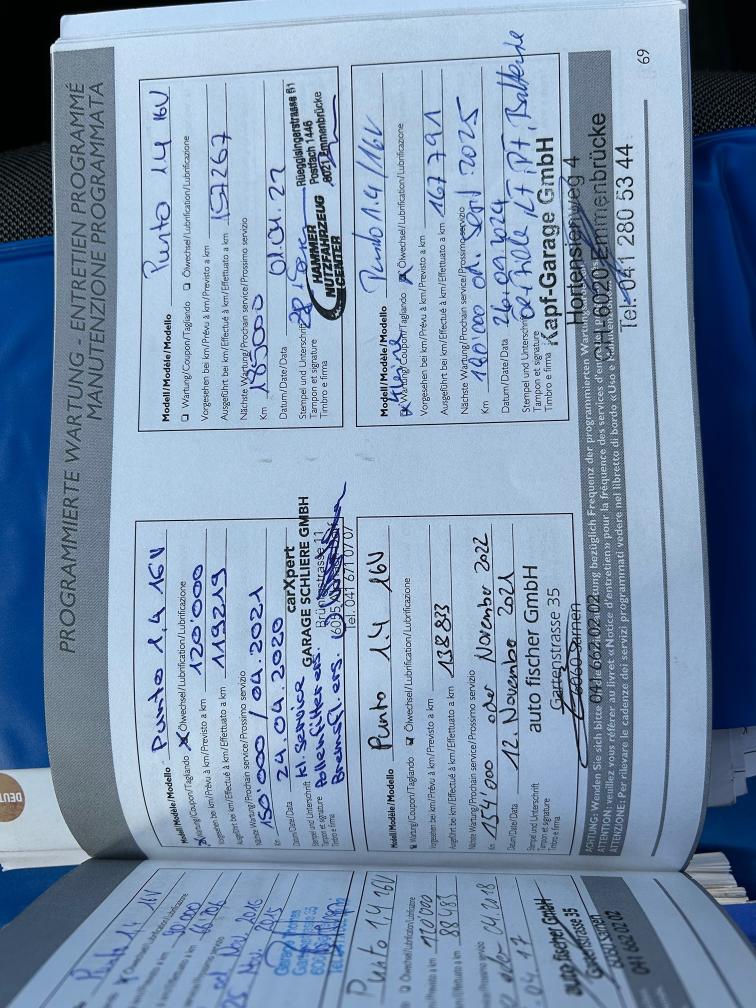 PROGRAMMIERTE WARTUNG - ENTRETIEN PROGRAMMÉ
MANUTENZIONE PROGRAMMATA
Modell/Modèle/Modello Punto 1,4 16V
Wartung/Coupon/Tagliando Ölwechsel/Lubrification/Lubrificazione
Vorgesehen bei km/Prévu à km/Previsto a km 120'000
Ausgeführt bei km/Effectué à km/Effettuato a km 119219
Nächste Wartung/Prochain service/Prossimo servizio
Km 150'000 / 04.2021
Datum/Date/Data 24.04.2020
Stempel und Unterschrift kl. Service
Tampon et signature Pollenfilter ers.
Timbro e firma Bremsfl. ers.
carXpert
GARAGE SCHLIERE GMBH
Brünigstrasse 11
Tel. 041 671 07 07
Modell/Modèle/Modello Punto 1.4 16V
Wartung/Coupon/Tagliando Ölwechsel/Lubrification/Lubrificazione
Vorgesehen bei km/Prévu à km/Previsto a km
Ausgeführt bei km/Effectué à km/Effettuato a km 138833
Nächste Wartung/Prochain service/Prossimo servizio
Km 154'000 oder November 2022
Datum/Date/Data 12. November 2021
Stempel und Unterschrift
Tampon et signature
Timbro e firma
auto fischer GmbH
Gartenstrasse 35
6060 Sarnen
041 662 02 02
Modell/Modèle/Modello Punto 1.4 16V
Wartung/Coupon/Tagliando Ölwechsel/Lubrification/Lubrificazione
Vorgesehen bei km/Prévu à km/Previsto a km
Ausgeführt bei km/Effectué à km/Effettuato a km 157267
Nächste Wartung/Prochain service/Prossimo servizio
Km 185000
Datum/Date/Data
Stempel und Unterschrift
Tampon et signature
Timbro e firma
HAMMER
NUTZFAHRZEUG
CENTER
Rüeggisingerstrasse 61
Postfach 1446
6021 Emmenbrücke
Modell/Modèle/Modello Punto 1.4/16V
Wartung/Coupon/Tagliando Ölwechsel/Lubrification/Lubrificazione
Vorgesehen bei km/Prévu à km/Previsto a km
Ausgeführt bei km/Effectué à km/Effettuato a km 167791
Nächste Wartung/Prochain service/Prossimo servizio
Km 190'000 od. Sept 2025
Datum/Date/Data 26.09.2024
Stempel und Unterschrift
Tampon et signature
Timbro e firma
LF, PF, Batterie
Kapf-Garage GmbH
Hortensienweg 4
CH-6020 Emmenbrücke
Tel. 041 280 53 44
ACHTUNG: Wenden Sie sich bitte
bezüglich Frequenz der programmierten
ATTENTION: veuillez vous référer au livret «Notice d'entretien» pour la fréquence des services d'entretien
ATTENZIONE: Per rilevare le cadenze dei servizi programmati vedere nel libretto di bordo «Uso e
69
Punto 1.4 16V
Ölwechsel/Lubrification/Lubrificazione
90'000
Nov. 2015
Punto 1.4 16V
Ölwechsel/Lubrification/Lubrificazione
110'000
88485
04.2018
04.17
auto fischer GmbH
Gartenstrasse 35
6060 Sarnen
041 662 02 02